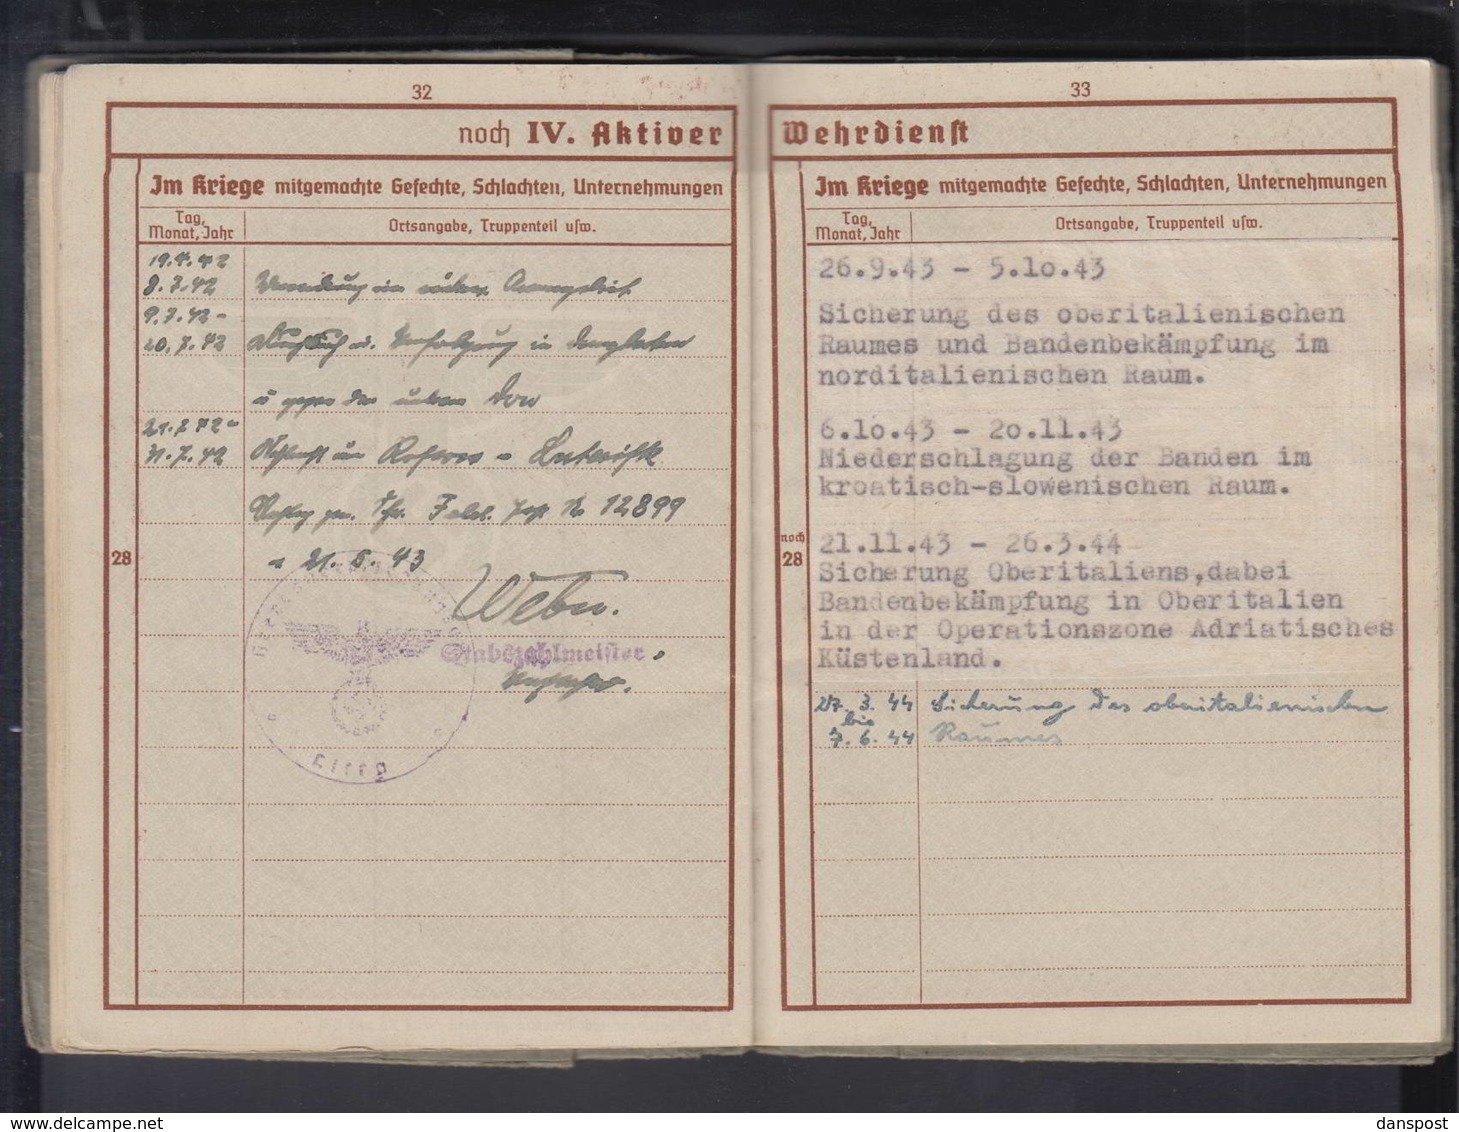 32
noch IV. Aktiver
Im Kriege mitgemachte Gefechte, Schlachten, Unternehmungen
Tag, Monat, Jahr
Ortsangabe, Truppenteil usw.
8.7.42
9.7.42 -
20.7.42
u. Verfolgung
u gegen den unteren Don
21.7.42 -
31.7.42
Feld. Post Nr 12899
28
21.5.43
Stabszahlmeister
33
Wehrdienst
Im Kriege mitgemachte Gefechte, Schlachten, Unternehmungen
Tag, Monat, Jahr
Ortsangabe, Truppenteil usw.
26.9.43 - 5.10.43
Sicherung des oberitalienischen
Raumes und Bandenbekämpfung im
norditalienischen Raum.
6.10.43 - 20.11.43
Niederschlagung der Banden im
kroatisch-slowenischen Raum.
noch
28
21.11.43 - 26.3.44
Sicherung Oberitaliens,dabei
Bandenbekämpfung in Oberitalien
in der Operationszone Adriatisches
Küstenland.
27. 3. 44 Sicherung des oberitalienischen
bis
7. 6. 44 Raumes
www.delcampe.net
danspost